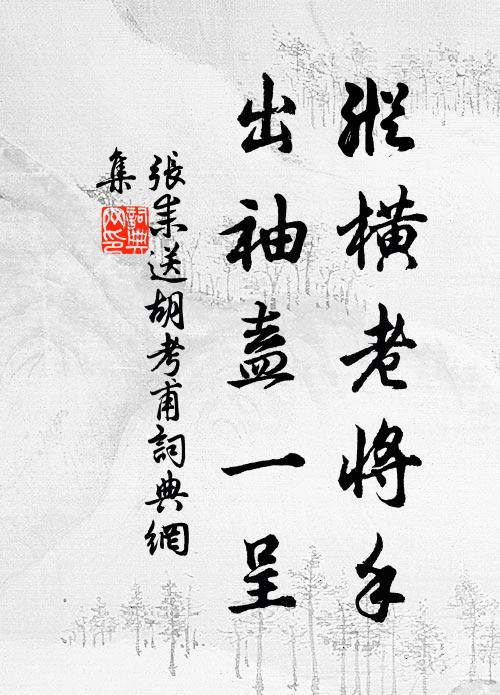 縱橫老將手
出袖盍一呈
張耒送胡考甫詞典網
集
詞典
网印